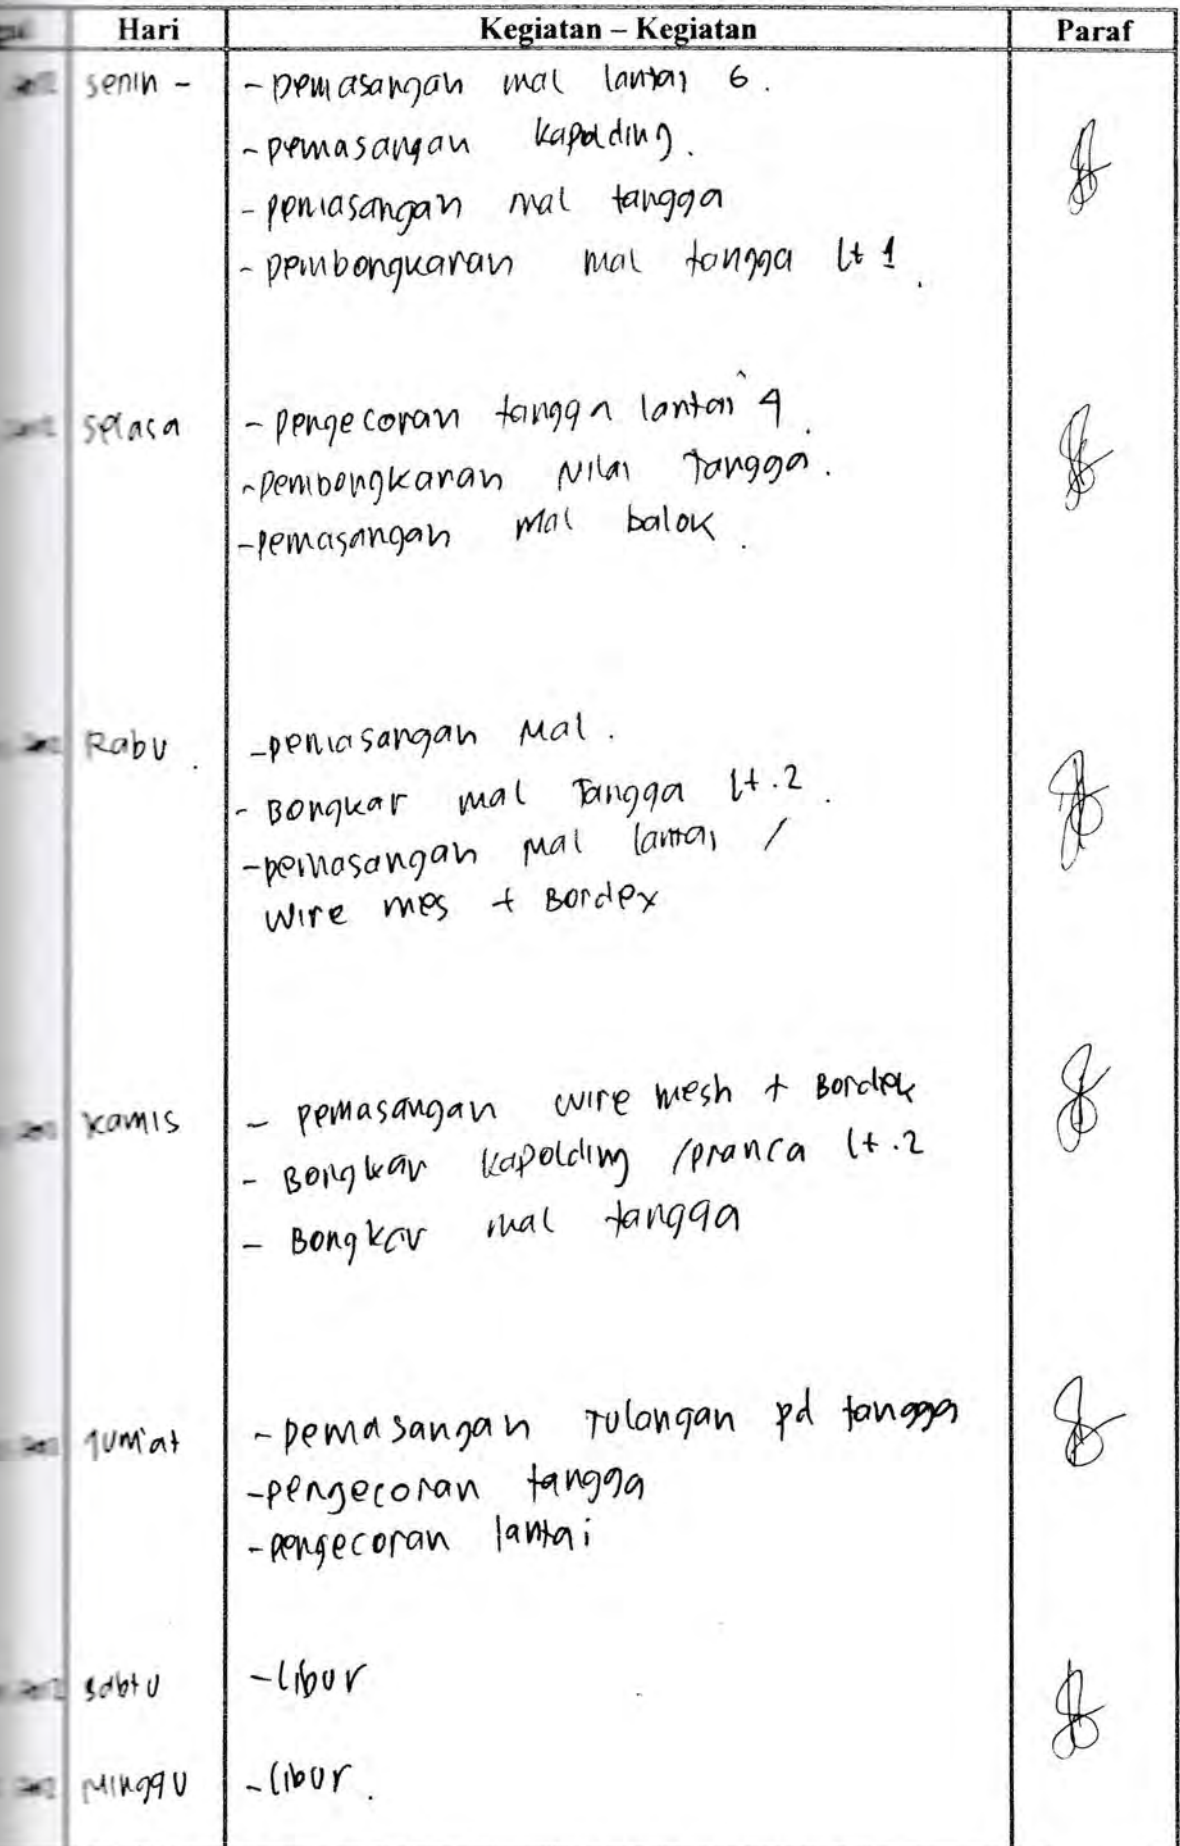 Hari Kegiatan – Kegiatan Paraf
senin - - pemasangan mal lantai 6.
- pemasangan kapolding.
- pemasangan mal tangga
- pembongkaran mal tangga lt 1.
selasa - pengecoran tangga lantai 4.
- pembongkaran Nilai Tangga.
- pemasangan Mal balok.
Rabu. - pemasangan Mal.
- Bongkar mal Tangga lt.2.
- pemasangan Mal lantai /
wire mes + Bordex
kamis - pemasangan wire mesh + Bordek
- Bongkar kapolding /pranca lt.2
- Bongkar mal tangga
Jum'at - pemasangan Tulangan pd tangga
- pengecoran tangga
- pengecoran lantai
sabtu - libur
Minggu - libur.